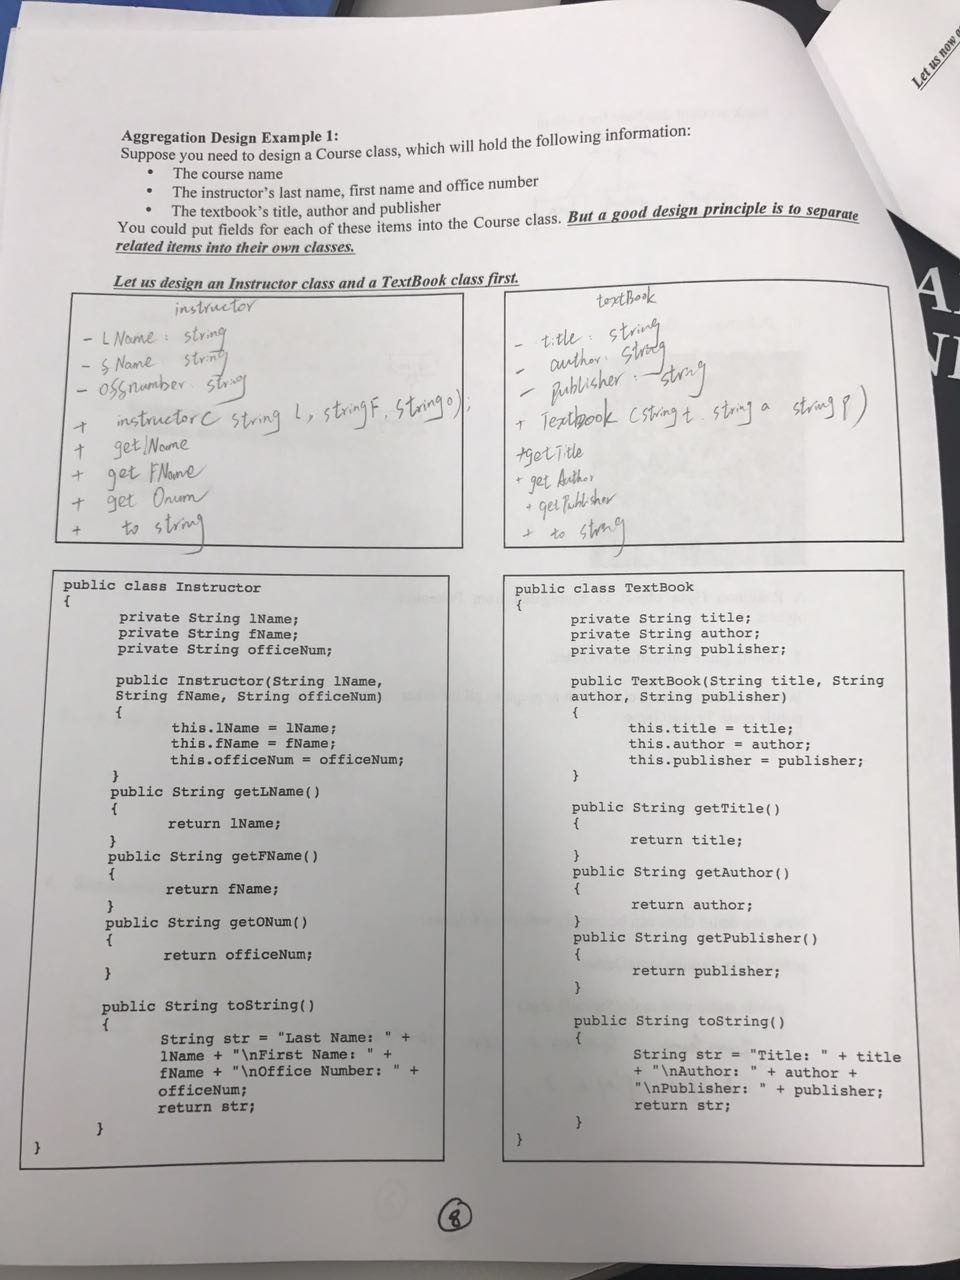 Let us now
Aggregation Design Example 1:
Suppose you need to design a Course class, which will hold the following information:
• The course name
• The instructor's last name, first name and office number
• The textbook's title, author and publisher
You could put fields for each of these items into the Course class. But a good design principle is to separate
related items into their own classes.
Let us design an Instructor class and a TextBook class first.
instructor
- LName : string
- fName string
- offnumber string
+ instructor( string L, string F, string o);
+ getlName
+ get FName
+ get Onum
+ to string
textBook
- title : string
- author. string
- Publisher : string
+ Textbook (string t string a string p)
+getTitle
+ get Author
+ getPublisher
+ to string
public class Instructor
{
private String lName;
private String fName;
private String officeNum;
public Instructor(String lName,
String fName, String officeNum)
{
this.lName = lName;
this.fName = fName;
this.officeNum = officeNum;
}
public String getLName()
{
return lName;
}
public String getFName()
{
return fName;
}
public String getONum()
{
return officeNum;
}
public String toString()
{
String str = "Last Name: " +
lName + "\nFirst Name: " +
fName + "\nOffice Number: " +
officeNum;
return str;
}
}
public class TextBook
{
private String title;
private String author;
private String publisher;
public TextBook(String title, String
author, String publisher)
{
this.title = title;
this.author = author;
this.publisher = publisher;
}
public String getTitle()
{
return title;
}
public String getAuthor()
{
return author;
}
public String getPublisher()
{
return publisher;
}
public String toString()
{
String str = "Title: " + title
+ "\nAuthor: " + author +
"\nPublisher: " + publisher;
return str;
}
}
8